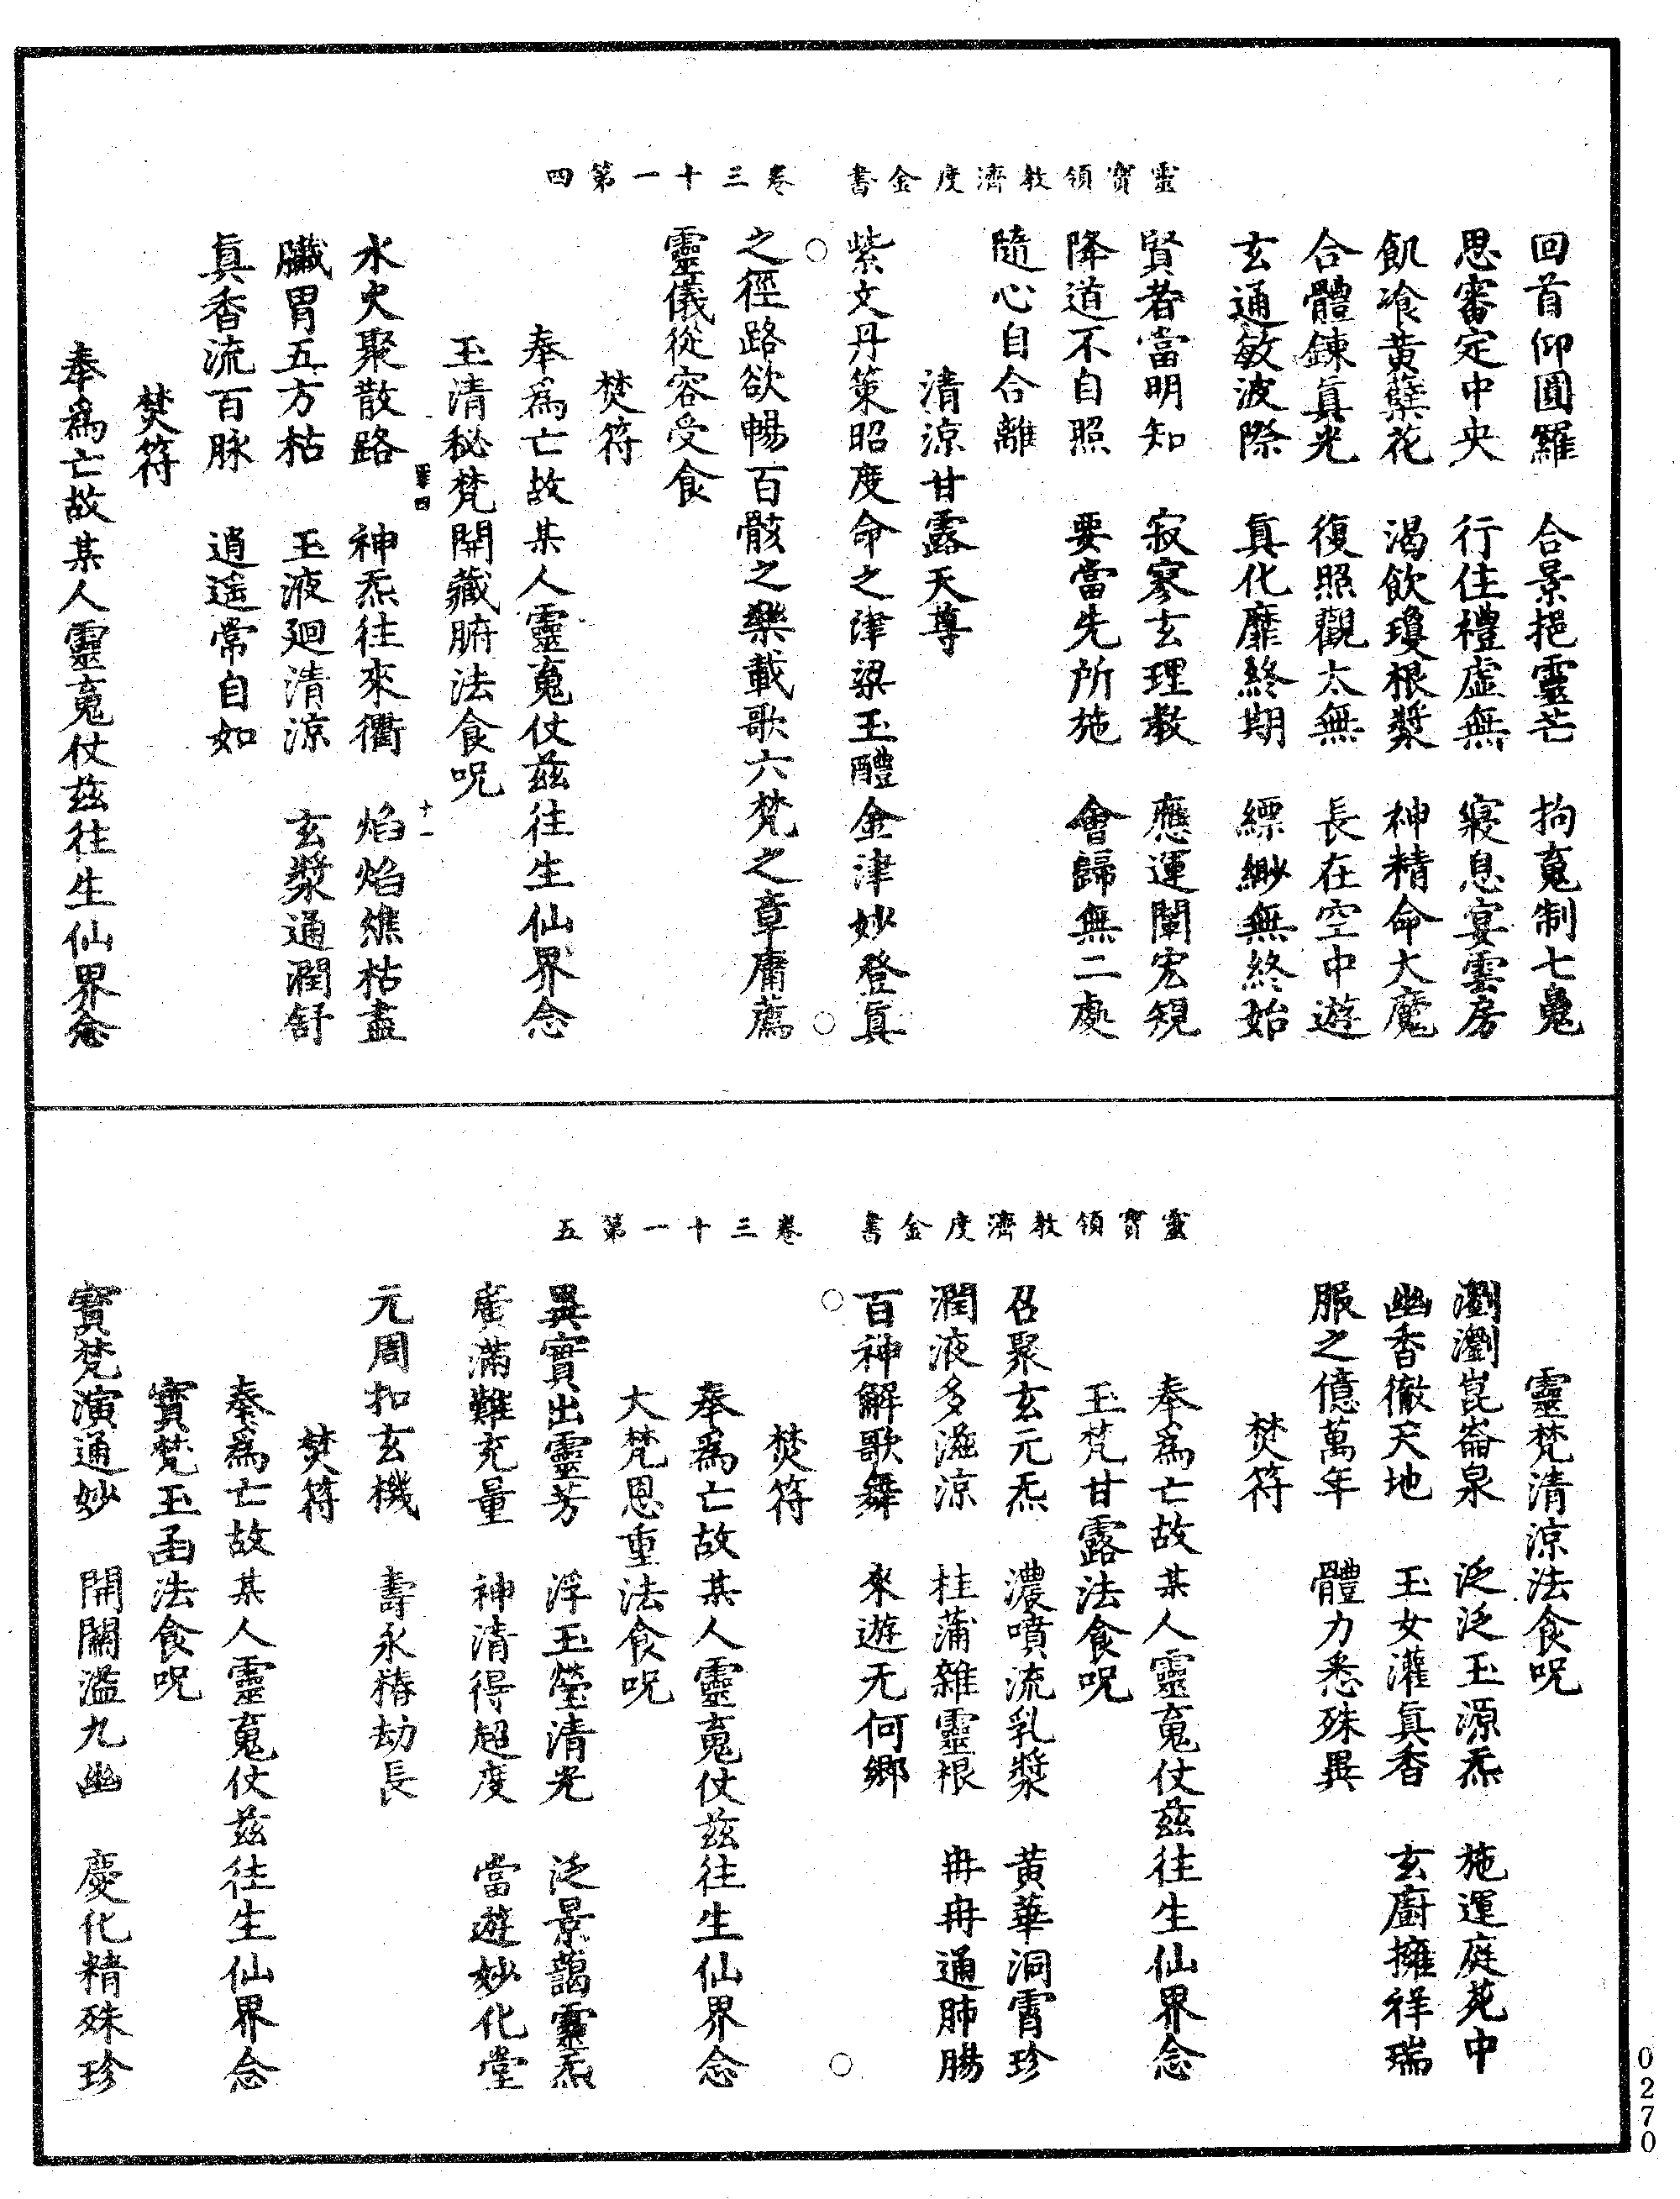 靈寶領教濟度金書　卷三十一第四
回首仰圓羅　合景挹靈芒　拘䰟制七魄
思審定中央　行住禮虛無　寢息宴雲房
飢飡黃蘗花　渴飲瓊根漿　神精命大魔
合體鍊眞光　復照觀太無　長在空中遊
玄通敏波際　眞化靡終期　縹緲無終始
賢者當明知　寂寥玄理教　應運闡宏規
降道不自照　要當先所施　會歸無二處
隨心自合離
清涼甘露天尊
紫文丹策昭度命之津梁玉醴金津妙登眞
之徑路欲暢百骸之樂載歌六梵之章庸薦
靈儀從容受食
焚符
奉爲亡故某人靈䰟仗茲往生仙界念
玉清秘梵開藏腑法食呪
水火聚散路　神炁往來衢　焰焰燋枯盡
臟胃五方枯　玉液廻清涼　玄漿通潤舒
眞香流百脉　逍遙常自如
焚符
奉爲亡故某人靈䰟仗茲往生仙界念
靈寶領教濟度金書　卷三十一第五
靈梵清涼法食呪
瀏瀏崑崙泉　泛泛玉源炁　施運庭苑中
幽香徹天地　玉女灌眞香　玄廚擁祥瑞
服之億萬年　體力悉殊異
焚符
奉爲亡故某人靈䰟仗茲往生仙界念
玉梵甘露法食呪
召聚玄元炁　濃噴流乳漿　黃華洞霄珍
潤液多滋涼　桂蒲雜靈根　冉冉通肺腸
百神解歌舞　來遊无何鄉
焚符
奉爲亡故某人靈䰟仗茲往生仙界念
大梵恩重法食呪
異實出靈芳　浮玉瑩清光　泛景藹靈炁
廣滿難充量　神清得超度　當遊妙化堂
元周扣玄機　壽永椿劫長
焚符
奉爲亡故某人靈䰟仗茲往生仙界念
寶梵玉函法食呪
寶梵演通妙　開闢濫九幽　慶化精殊珍
0270